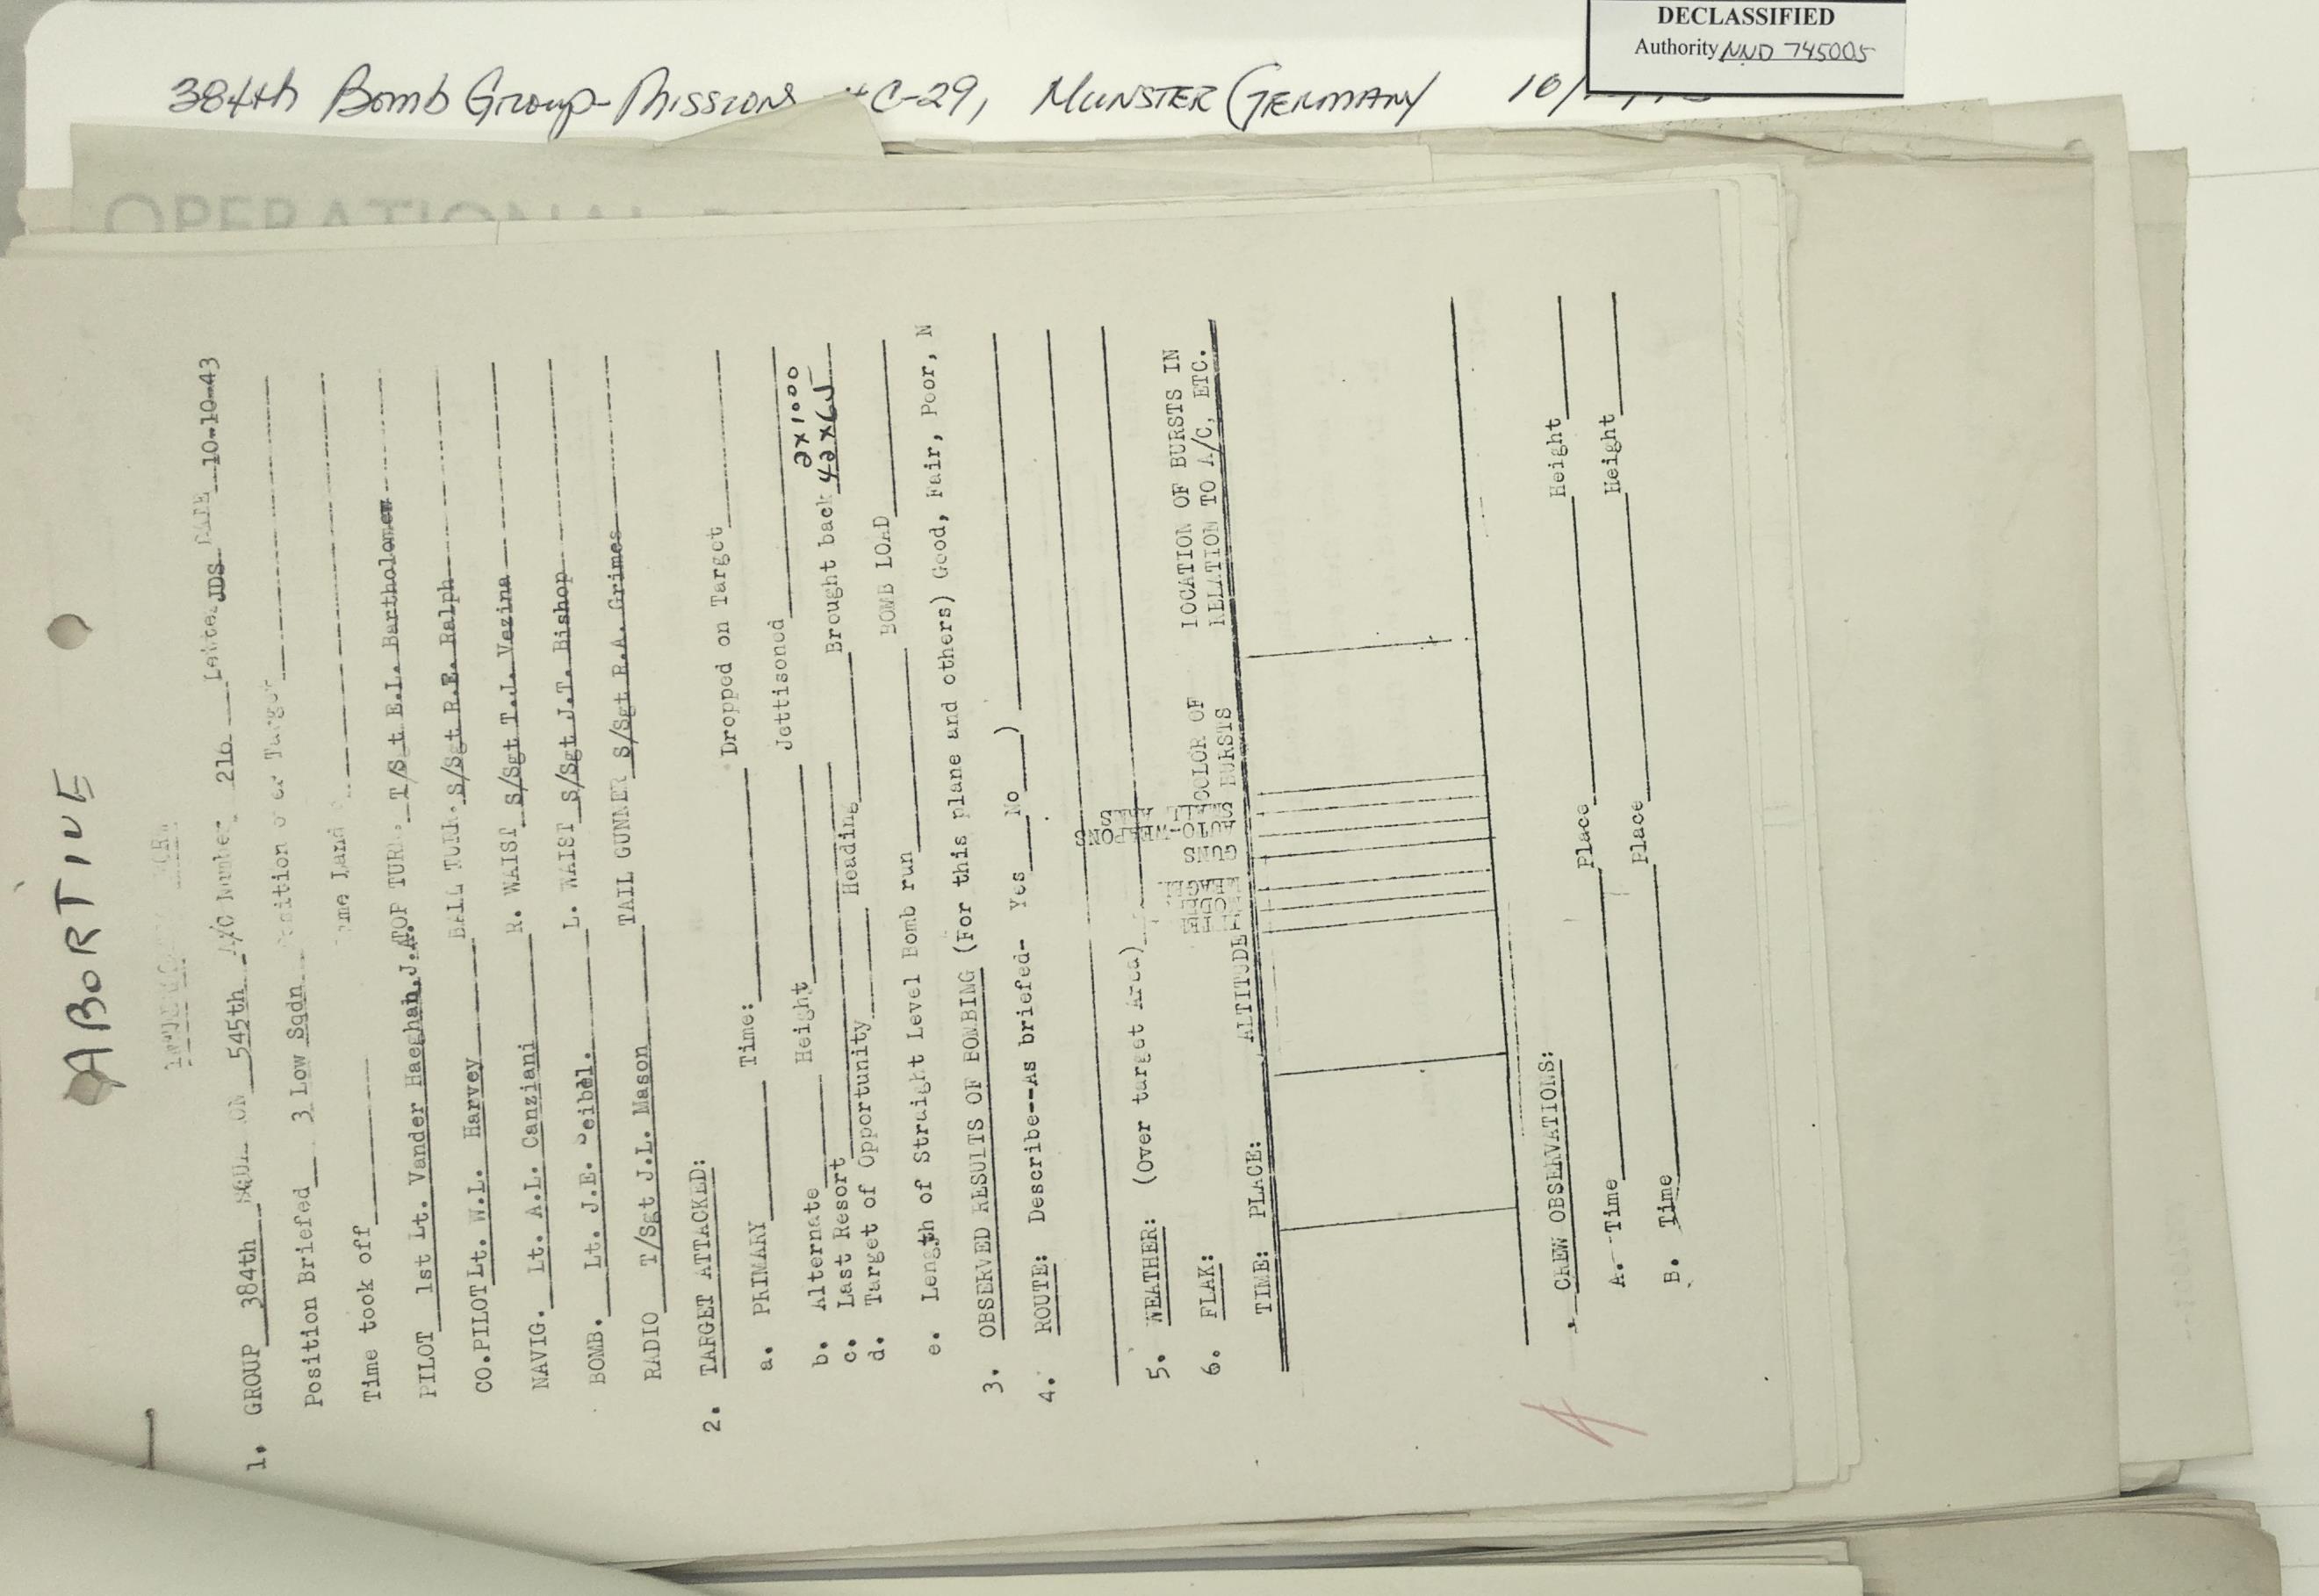 DECLASSIFIED
Authority NND 745005
384th Bomb Group-Missions #C-29, MUNSTER GERMANY 10/
OPERATIONAL
ABORTIVE
1. GROUP 384th 545th A/C Number 216 Letter JDS DATE 10-10-43
Position Briefed 3 Low Sqdn Position over Target
Time took off Land
PILOT 1st Lt. Vander Haeghan, J.A. TOP TURR. T/Sgt E.L. Bartholomew
CO.PILOT Lt. W.L. Harvey BALL TURR. S/Sgt R.E. Ralph
NAVIG. Lt. A.L. Canziani R. WAIST S/Sgt T.J. Vezina
BOMB. Lt. J.E. Seibel. L. WAIST S/Sgt J.T. Bishop
RADIO T/Sgt J.L. Mason TAIL GUNNER S/Sgt R.A. Grimes
2. TARGET ATTACKED:
a. PRIMARY Time: Dropped on Target
b. Alternate Height Jettisoned
2x1000
c. Last Resort Brought back 42x65
d. Target of Opportunity Heading
e. Length of Straight Level Bomb run BOMB LOAD
3. OBSERVED RESULTS OF BOMBING (For this plane and others) Good, Fair, Poor, N
4. ROUTE: Describe--As briefed- Yes No )
5. WEATHER: (Over target Area)
6. FLAK:
TIME: PLACE: ALTITUDE COLOR OF BURSTS LOCATION OF BURSTS IN RELATION TO A/C, ETC.
CREW OBSERVATIONS:
A. Time Place Height
B. Time Place Height